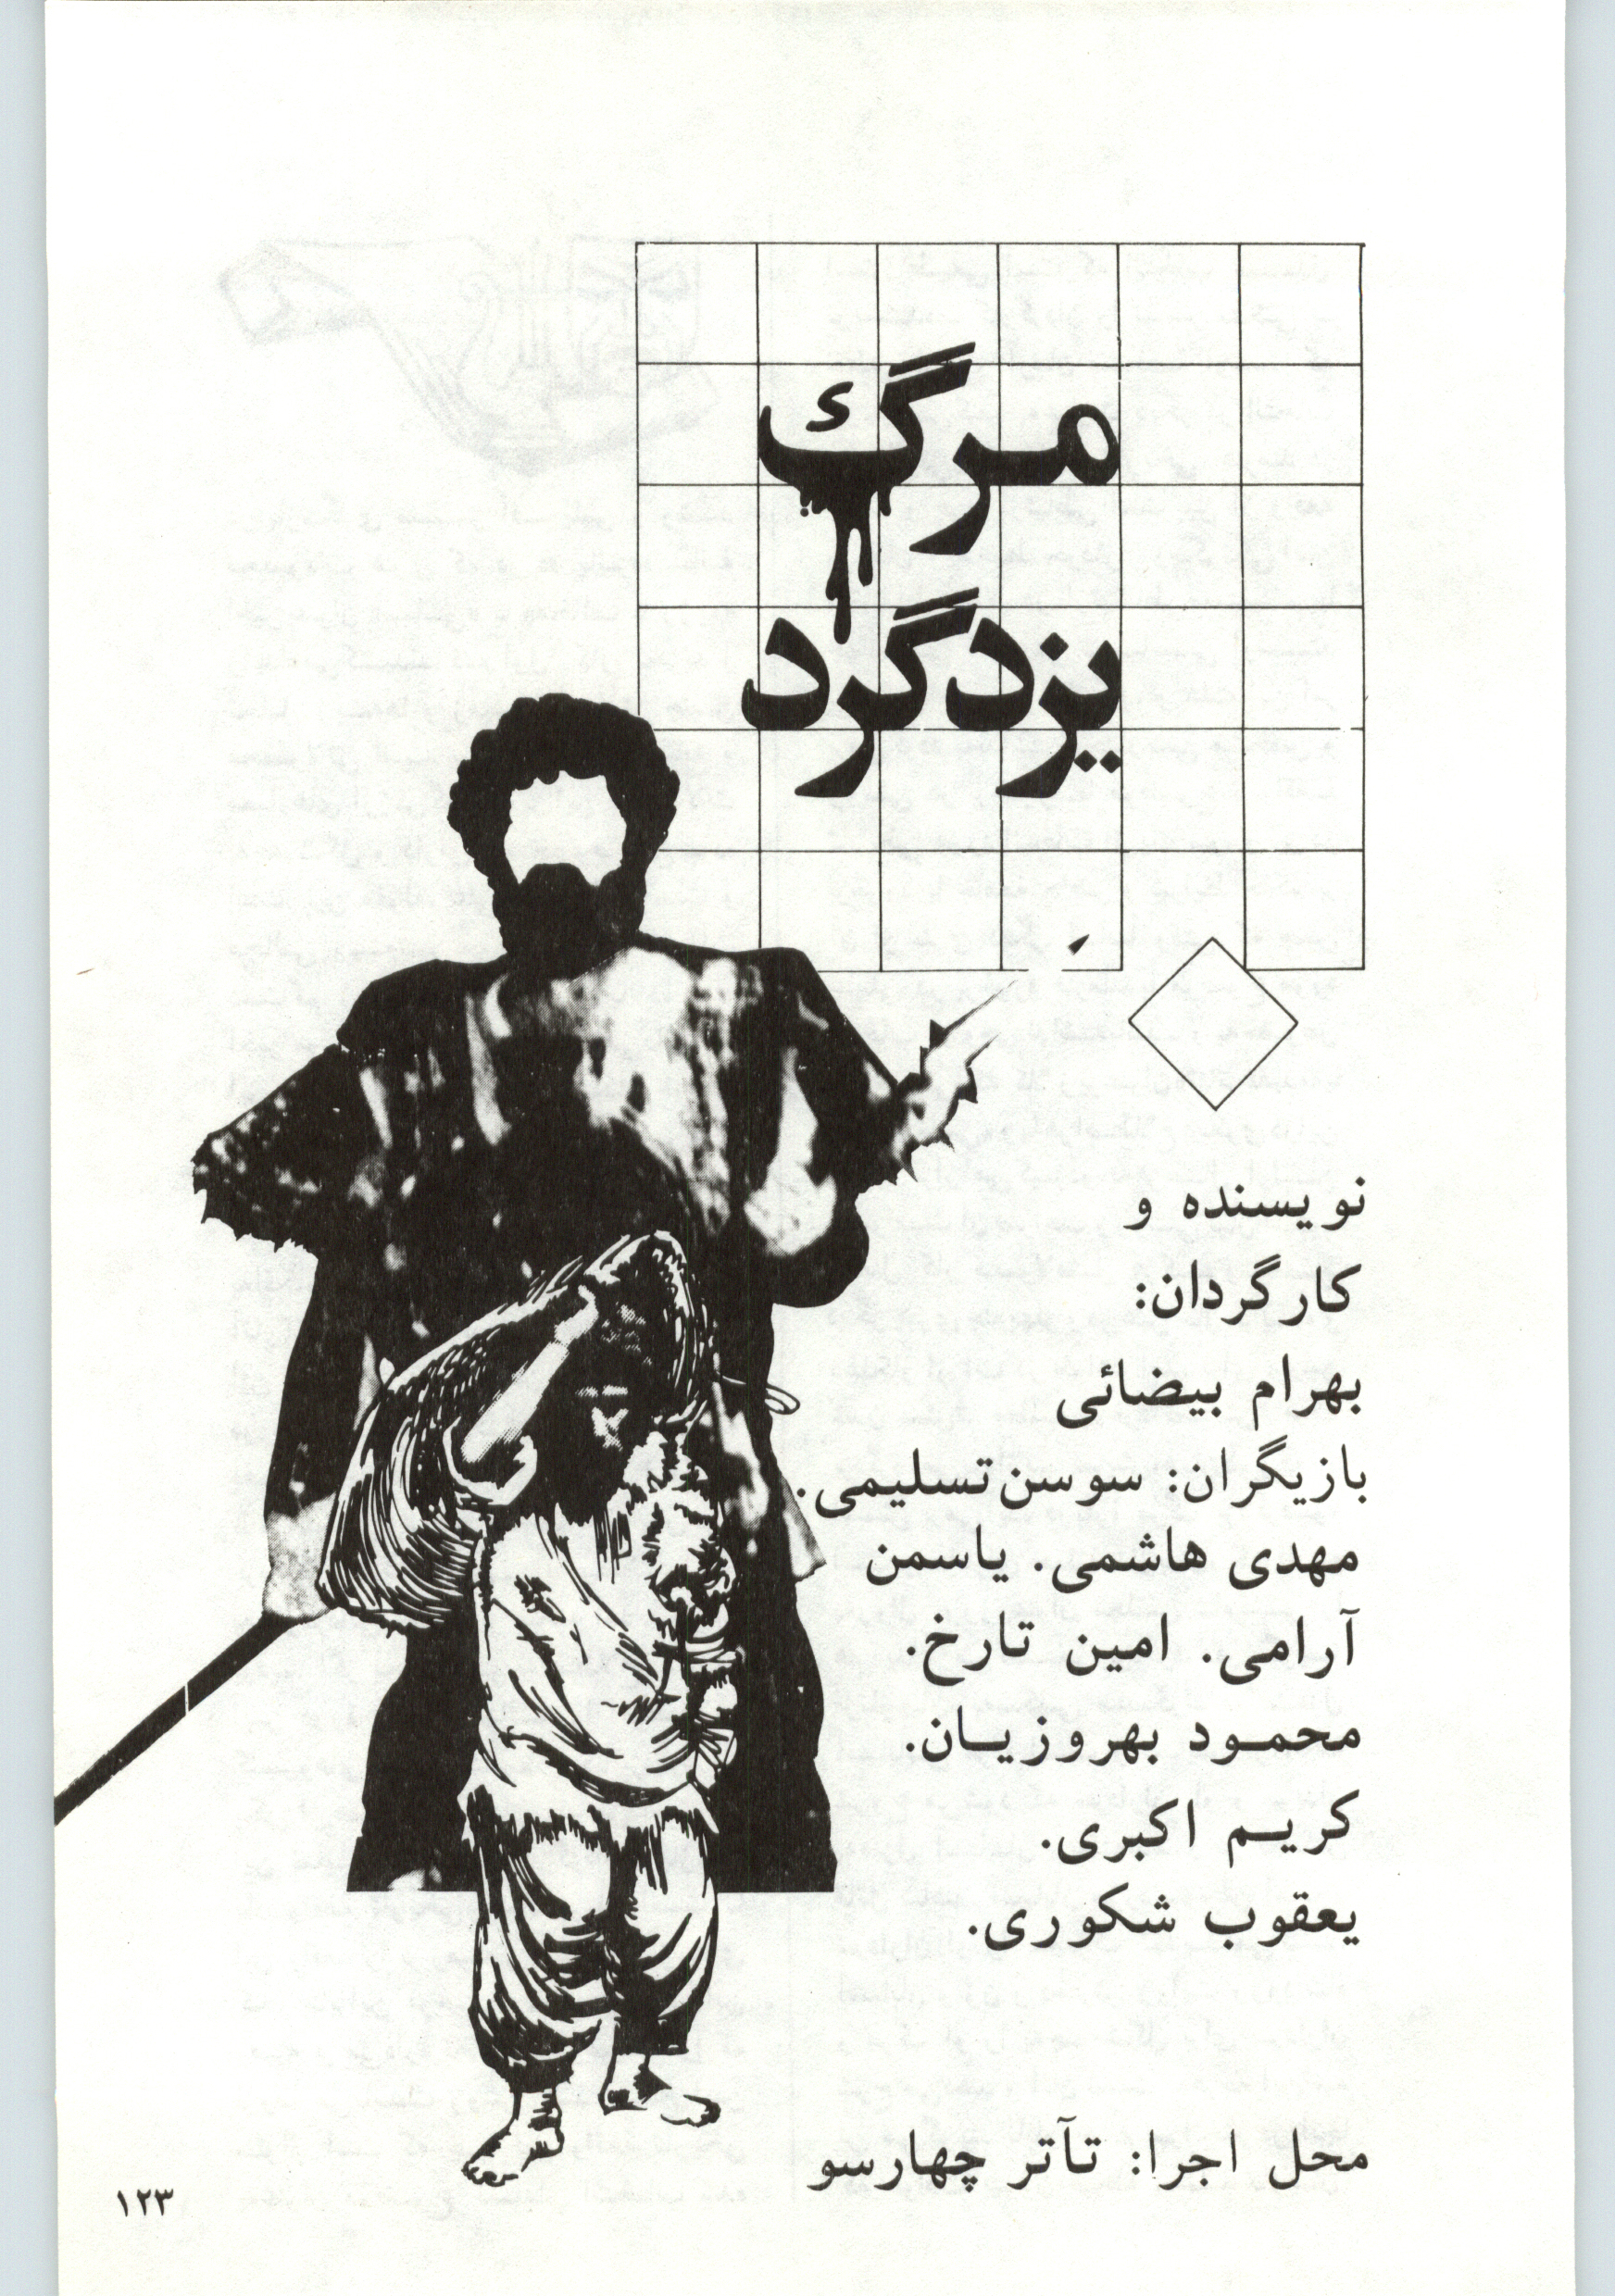 مرگ
یزدگرد
نویسنده و
کارگردان:
بهرام بیضائی
بازیگران: سوسن تسلیمی.
مهدی هاشمی. یاسمن
آرامی. امین تارخ.
محمود بهروزیان.
کریم اکبری.
یعقوب شکوری.
محل اجرا: تآتر چهارسو
۱۲۳